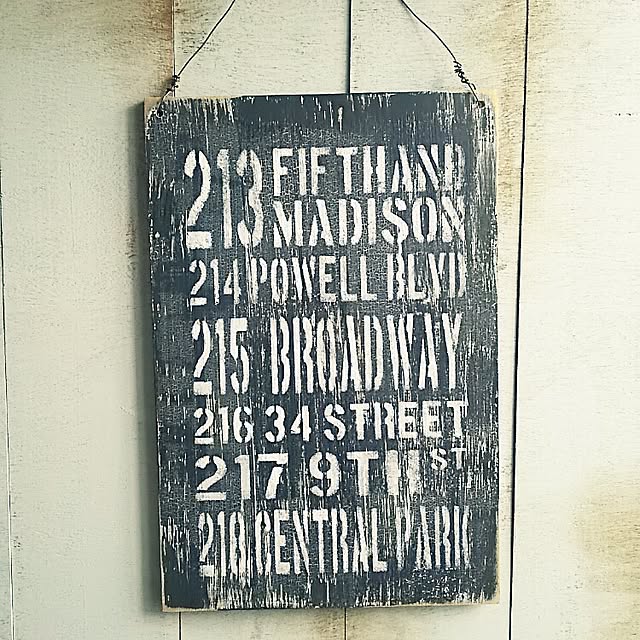 213 FIFTH AND
MADISON
214 POWELL BLVD
215 BROADWAY
216 34 STREET
217 9TH ST
218 CENTRAL PARK